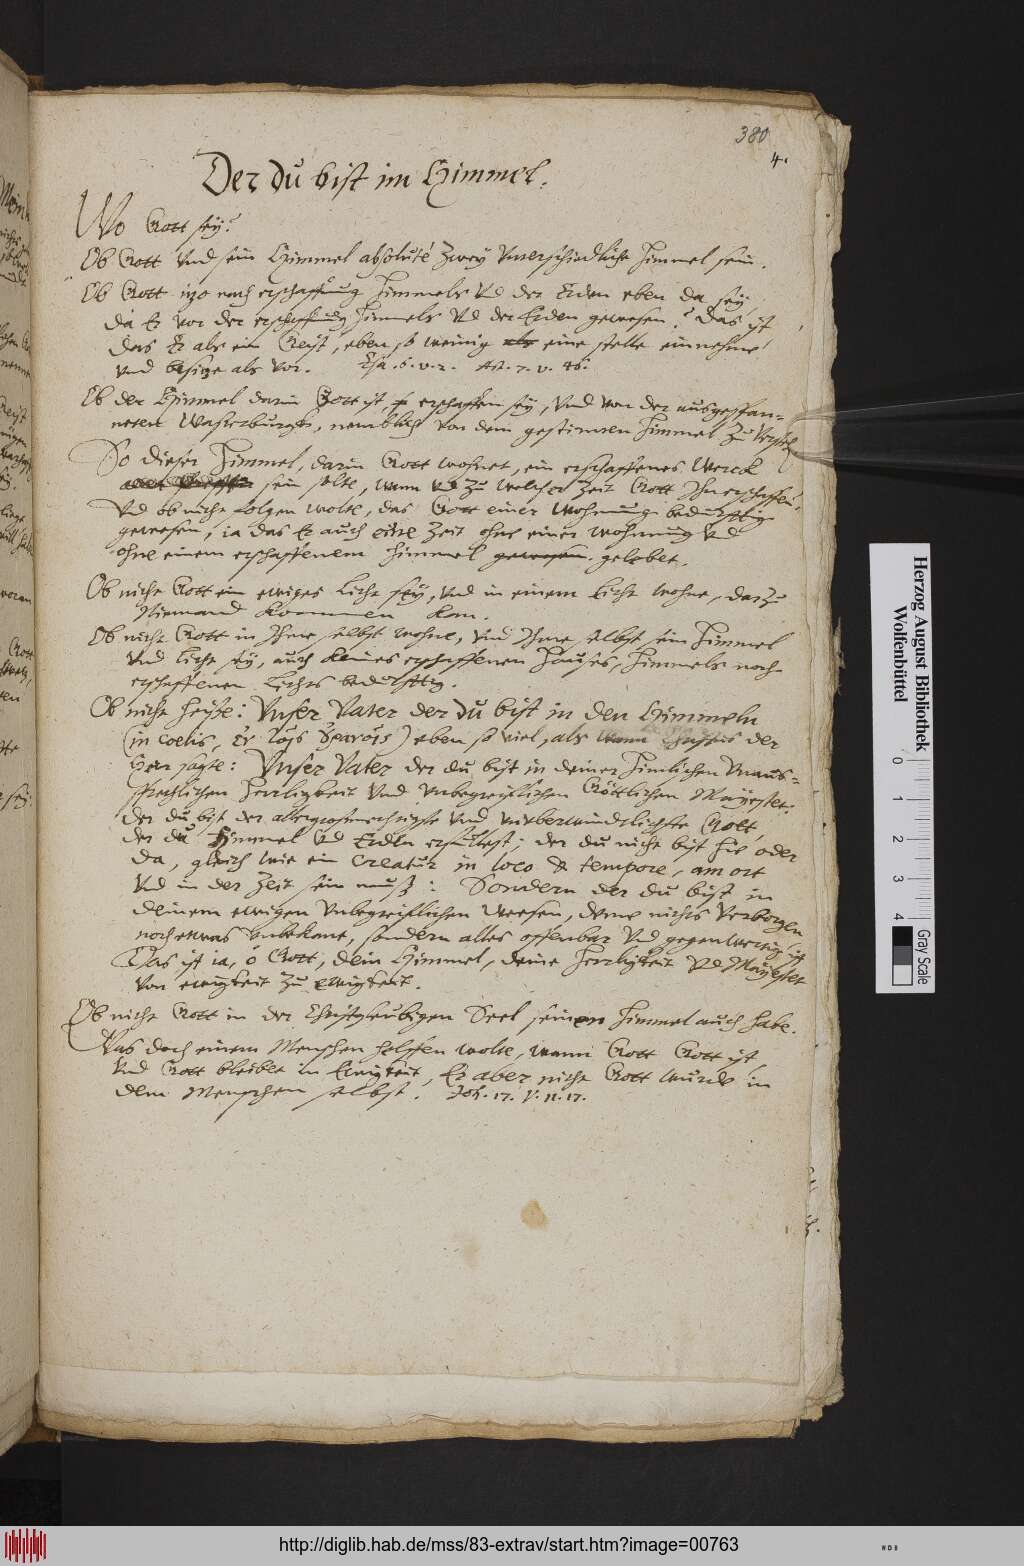 380
4.
Der du bist im Himmel.
Wo Gott sey?
Ob Gott und sein Himmel absolutè zwey unterschiedliche Himmel sein.
Ob Gott izo nach erschaffung Himmels vd der Erden eben da sey,
da Er vor der erschaffung Himmels vd der Erden gewesen? Das ist
das Er als ein Geist, eben so wenig als eine stelle einnehme
und besize als vor. Esa. 6. v. 2. Act. 7. v. 48.
Ob der Himmel darin Gott ist, erschaffen sey, vnd von der ausgespan-
neten Wasserburgk, nemblich von dem gestirnten Himmel zu verstehen
So dieser Himmel, darin Gott wohnet, ein erschaffenes Werck
sein solte, wann vd zu welcher Zeit Gott Ihn erschaffen,
Vnd ob nicht folgen wolte, das Gott einer Wohnung bedürfftig
gewesen, ia das Er auch eine Zeit ohne einer wohnung vd
ohne einem erschaffenem Himmel gewesen. gelebet.
Ob nicht Gott ein ewiges Licht sey, vnd in einem Licht wohne, da zu
Niemand kommen kan.
Ob nicht Gott in Ihme selbst wohne, vnd Ihme selbst sein Himmel
und Licht sey, auch keines erschaffenen Hauses, Himmels noch
erschaffenen Lichts bedürfftig.
Ob nicht heisse: Vnser Vater der du bist in den Himmeln
(in coelis, ἐν τοῖς οὐρανοῖς) eben so viel, als wenn Christus der
Herr sagte: Vnser Vater der du bist in deiner Himlischen vnaus-
sprechlichen Herrligkeit vnd vnbegreifflichen Göttlichen Mayestet.
der du bist der allergrosmechtigste vnd vnüberwindtlichste Gott,
der du Himmel vd Erden erfüllest; der du nicht bist hie oder
da, gleich wie ein Creatur in loco & tempore, am ort
vnd in der Zeit sein muss: Sondern der du bist in
deinem ewigen vnbegreifflichen Wesen, deme nichts verborgen
noch etwas vnbekant, sondern alles offenbar vnd gegenwertig ist
Das ist ia, ô Gott, dein Himmel, deine Herrligkeit vd Mayestet
von ewigkeit zu ewigkeit.
Ob nicht Gott in der Christgleubigen Seel seinen Himmel auch habe.
Was doch einem Menschen helffen wolte, wann Gott Gott ist,
vnd Gott bleibet in Ewigkeit, Er aber nicht Gott würde in
dem Menschen selbst. Joh. 17. v. 11. 17.
Herzog August Bibliothek
Wolfenbüttel
0 1 2 3 4
Gray Scale
http://diglib.hab.de/mss/83-extrav/start.htm?image=00763